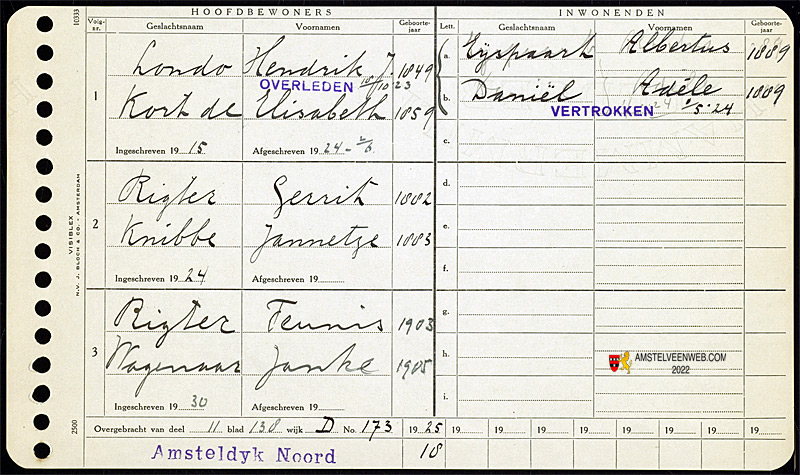 HOOFDBEWONERS
INWONENDEN
10333
Volg-nr.
Geslachtsnaam
Voornamen
Geboorte-jaar
Lett.
Geslachtsnaam
Voornamen
Geboorte-jaar
1
Londo Hendrik J. 1849
OVERLEDEN 10/10 23
Kort de Elisabeth 1859
Ingeschreven 19 15 Afgeschreven 19 24 -
a. Eijspaart Albertus 1889
b. Daniël Adéle 1889
VERTROKKEN 1/5'24
c.
2
Rigter Gerrit 1882
Knibbe Jannetje 1883
Ingeschreven 19 24 Afgeschreven 19
d.
e.
f.
3
Rigter Teunis 1903
Wagenaar Janke 1905
Ingeschreven 19 30 Afgeschreven 19
g.
h.
i.
AMSTELVEENWEB.COM
2022
VISIBLEX
N.V. J. BLOCH & CO. - AMSTERDAM
2500
Overgebracht van deel 11 blad 130 wijk D No. 173 19 25 19 19 19 19 19 19 19 19
Amsteldyk Noord 18